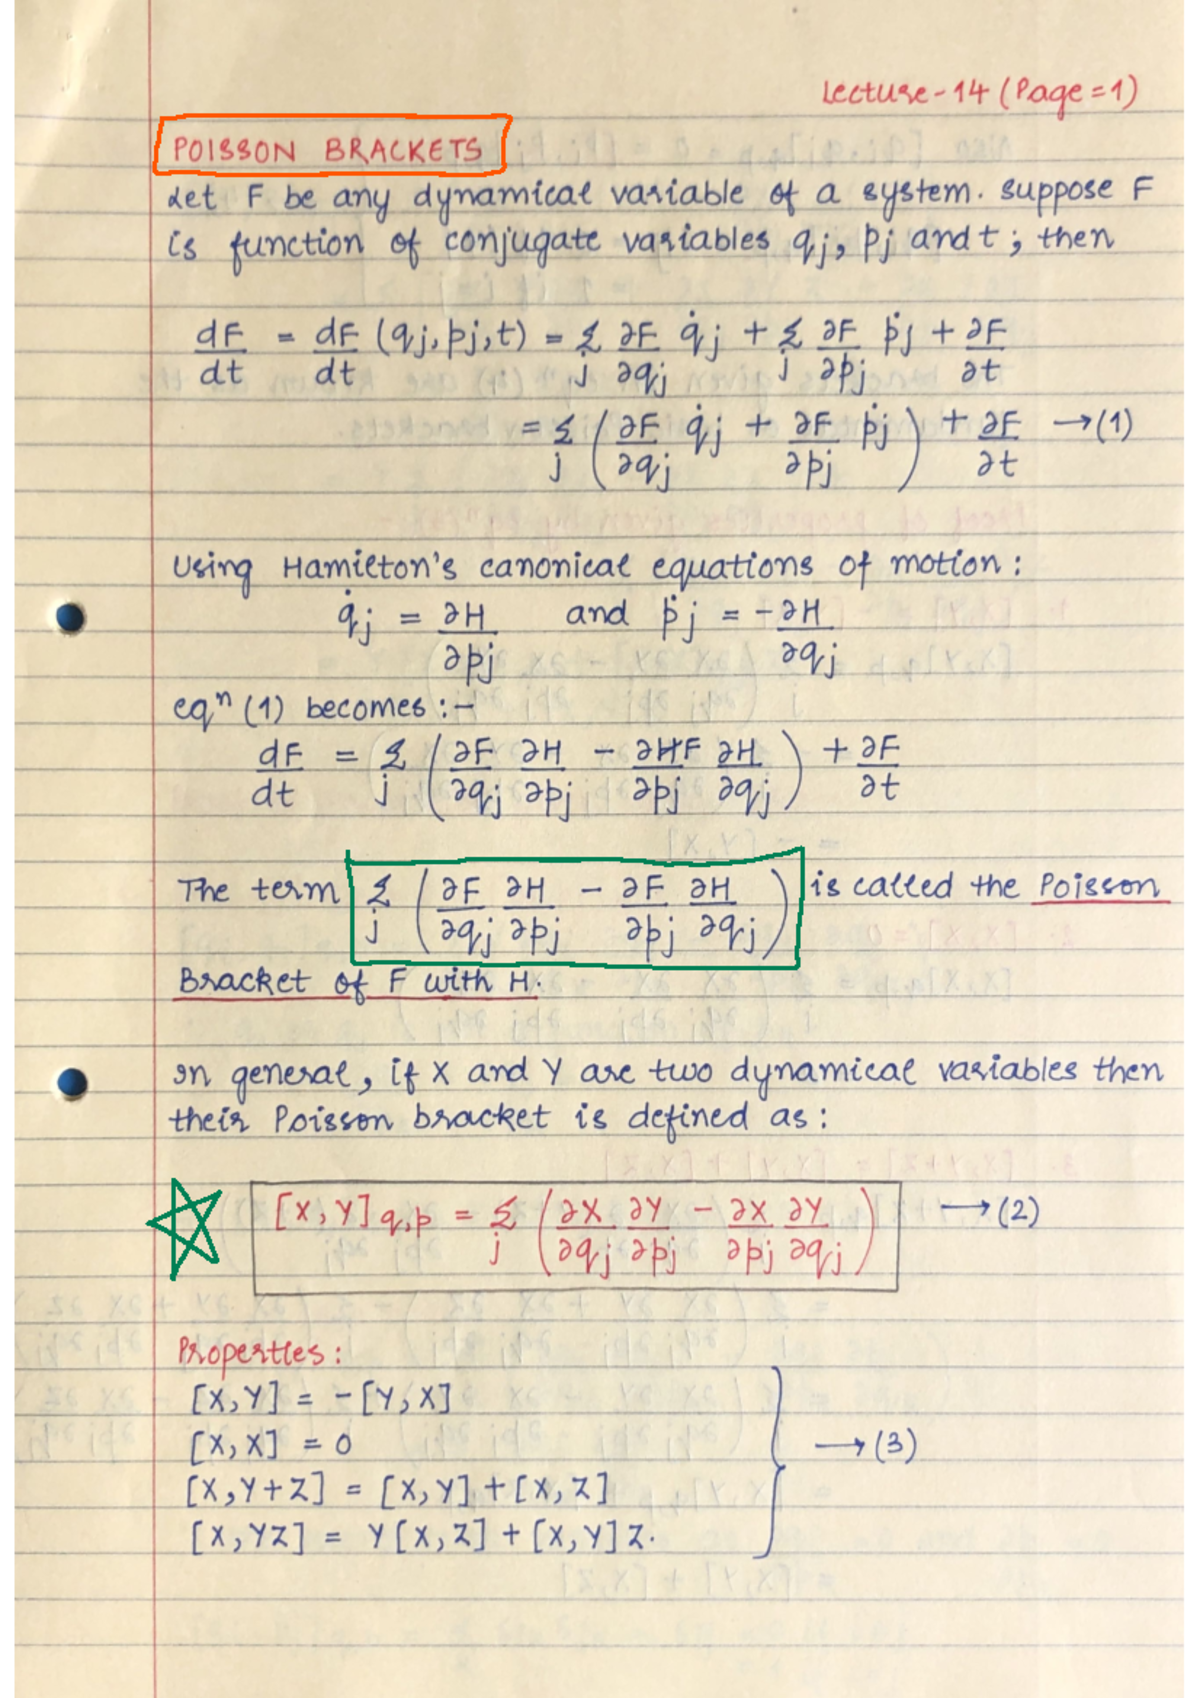 Lecture-14 (Page=1)
POISSON BRACKETS
Let F be any dynamical variable of a system. Suppose F
is function of conjugate variables qj, pj and t; then
dF/dt = dF/dt (qj, pj, t) = Σj ∂F/∂qj q̇j + Σj ∂F/∂pj ṗj + ∂F/∂t
= Σj (∂F/∂qj q̇j + ∂F/∂pj ṗj) + ∂F/∂t →(1)
Using Hamilton's canonical equations of motion:
q̇j = ∂H/∂pj and ṗj = -∂H/∂qj
eqⁿ (1) becomes:-
dF/dt = Σj (∂F/∂qj ∂H/∂pj - ∂F/∂pj ∂H/∂qj) + ∂F/∂t
The term Σj (∂F/∂qj ∂H/∂pj - ∂F/∂pj ∂H/∂qj) is called the Poisson
Bracket of F with H.
In general, if X and Y are two dynamical variables then
their Poisson bracket is defined as:
[X,Y]q,p = Σj (∂X/∂qj ∂Y/∂pj - ∂X/∂pj ∂Y/∂qj) →(2)
Properties:
[X,Y] = -[Y,X]
[X,X] = 0 →(3)
[X,Y+Z] = [X,Y]+[X,Z]
[X,YZ] = Y[X,Z]+[X,Y]Z.